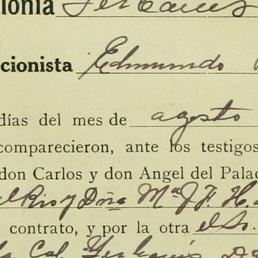 lonia
cionista Edmundo
días del mes de agosto
comparecieron, ante los testigos
don Carlos y don Angel del Palac
el Rio y Dña Mª J. F. H. de
contrato, y por la otra el Sr.
Col.